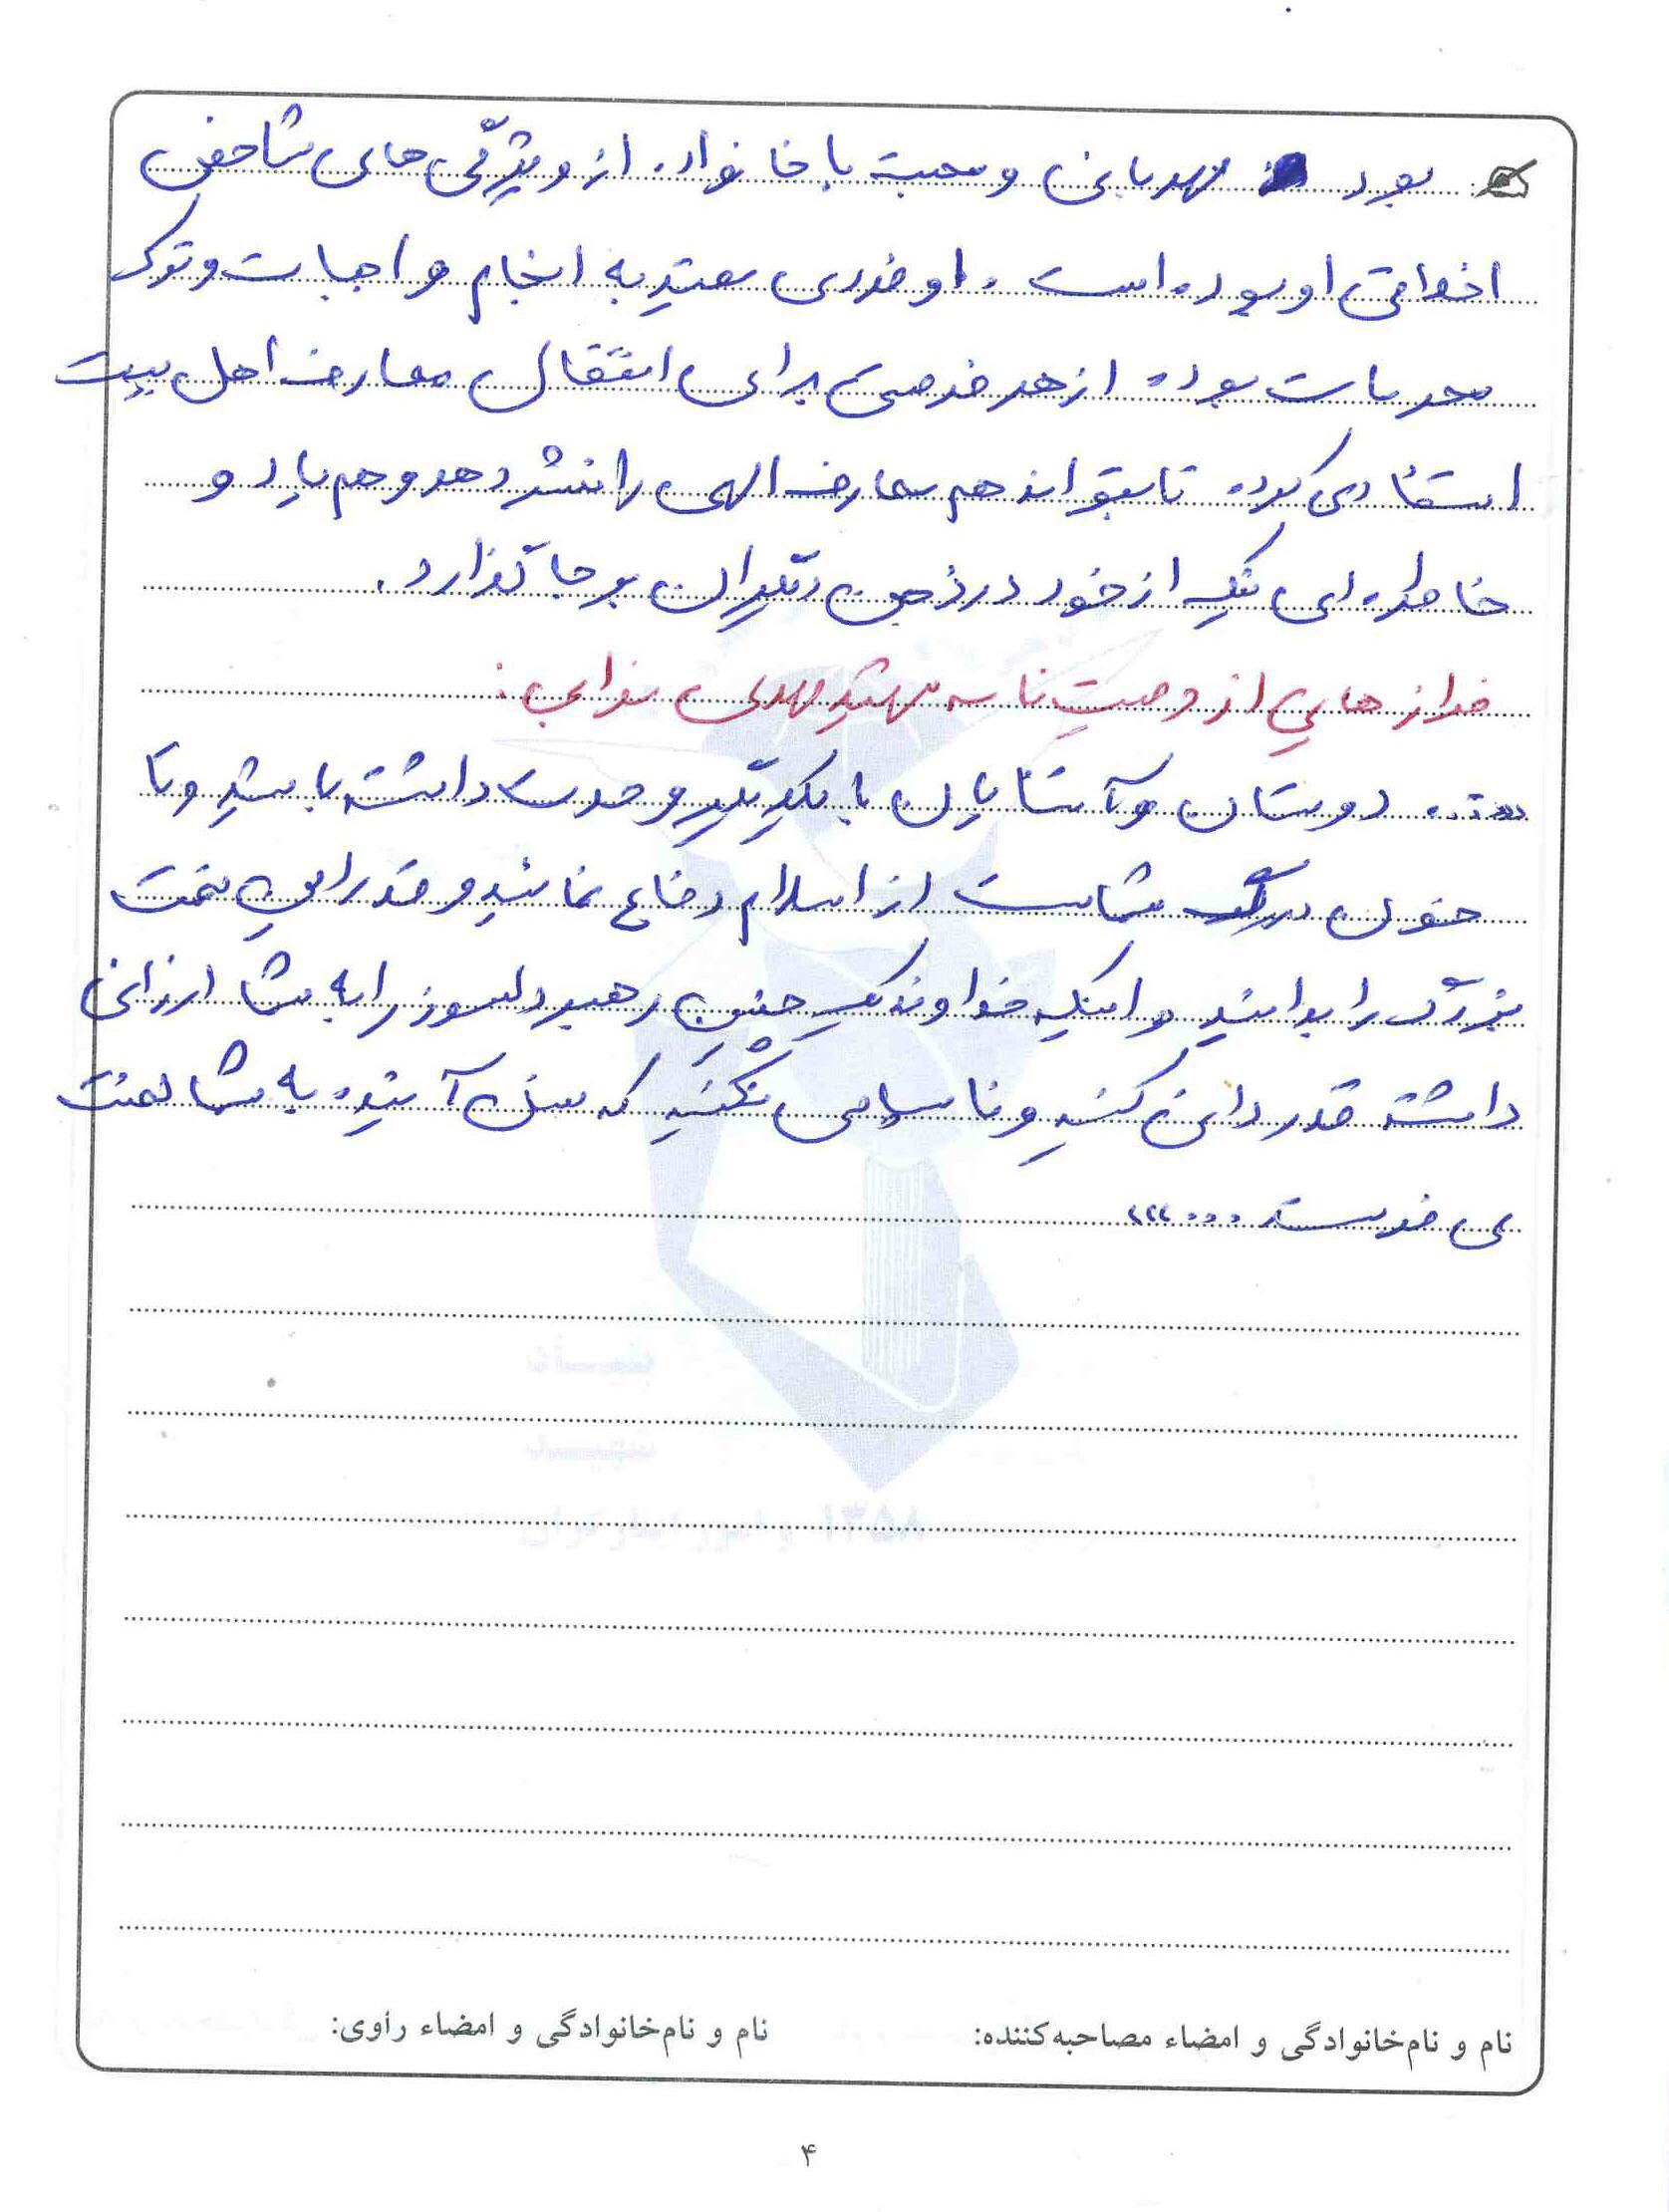 بود مهربانی و محبت با خانواده از ویژگی های شاخص
اخلاقی او بوده است . او فردی مقید به انجام واجبات و ترک
محرمات بوده از هر فرصتی برای انتقال معارف اهل بیت
استفاده می کرده تا بتواند هم معارف الهی را نشر دهد و هم یاد و
خاطره ای نیک از خود در ذهن دیگران بر جا گذارد.
فرازهایی از وصیت نامه شهید مهدی نوابی :
«... دوستان و آشنایان با یکدیگر وحدت داشته باشید و تا
خون در رگ شماست از اسلام دفاع نمائید و قدر این نعمت
بزرگ را بدانید و اینکه خداوند یک چنین رهبر دلسوز را به شما ارزانی
داشته قدردانی کنید و ناسپاسی نکنید که نسل آینده به شما لعنت
می فرستد ...»
بنیاد
شهید
۱۳۵۸ و امور ایثارگران
نام و نام‌خانوادگی و امضاء مصاحبه‌کننده: نام و نام‌خانوادگی و امضاء راوی:
۴